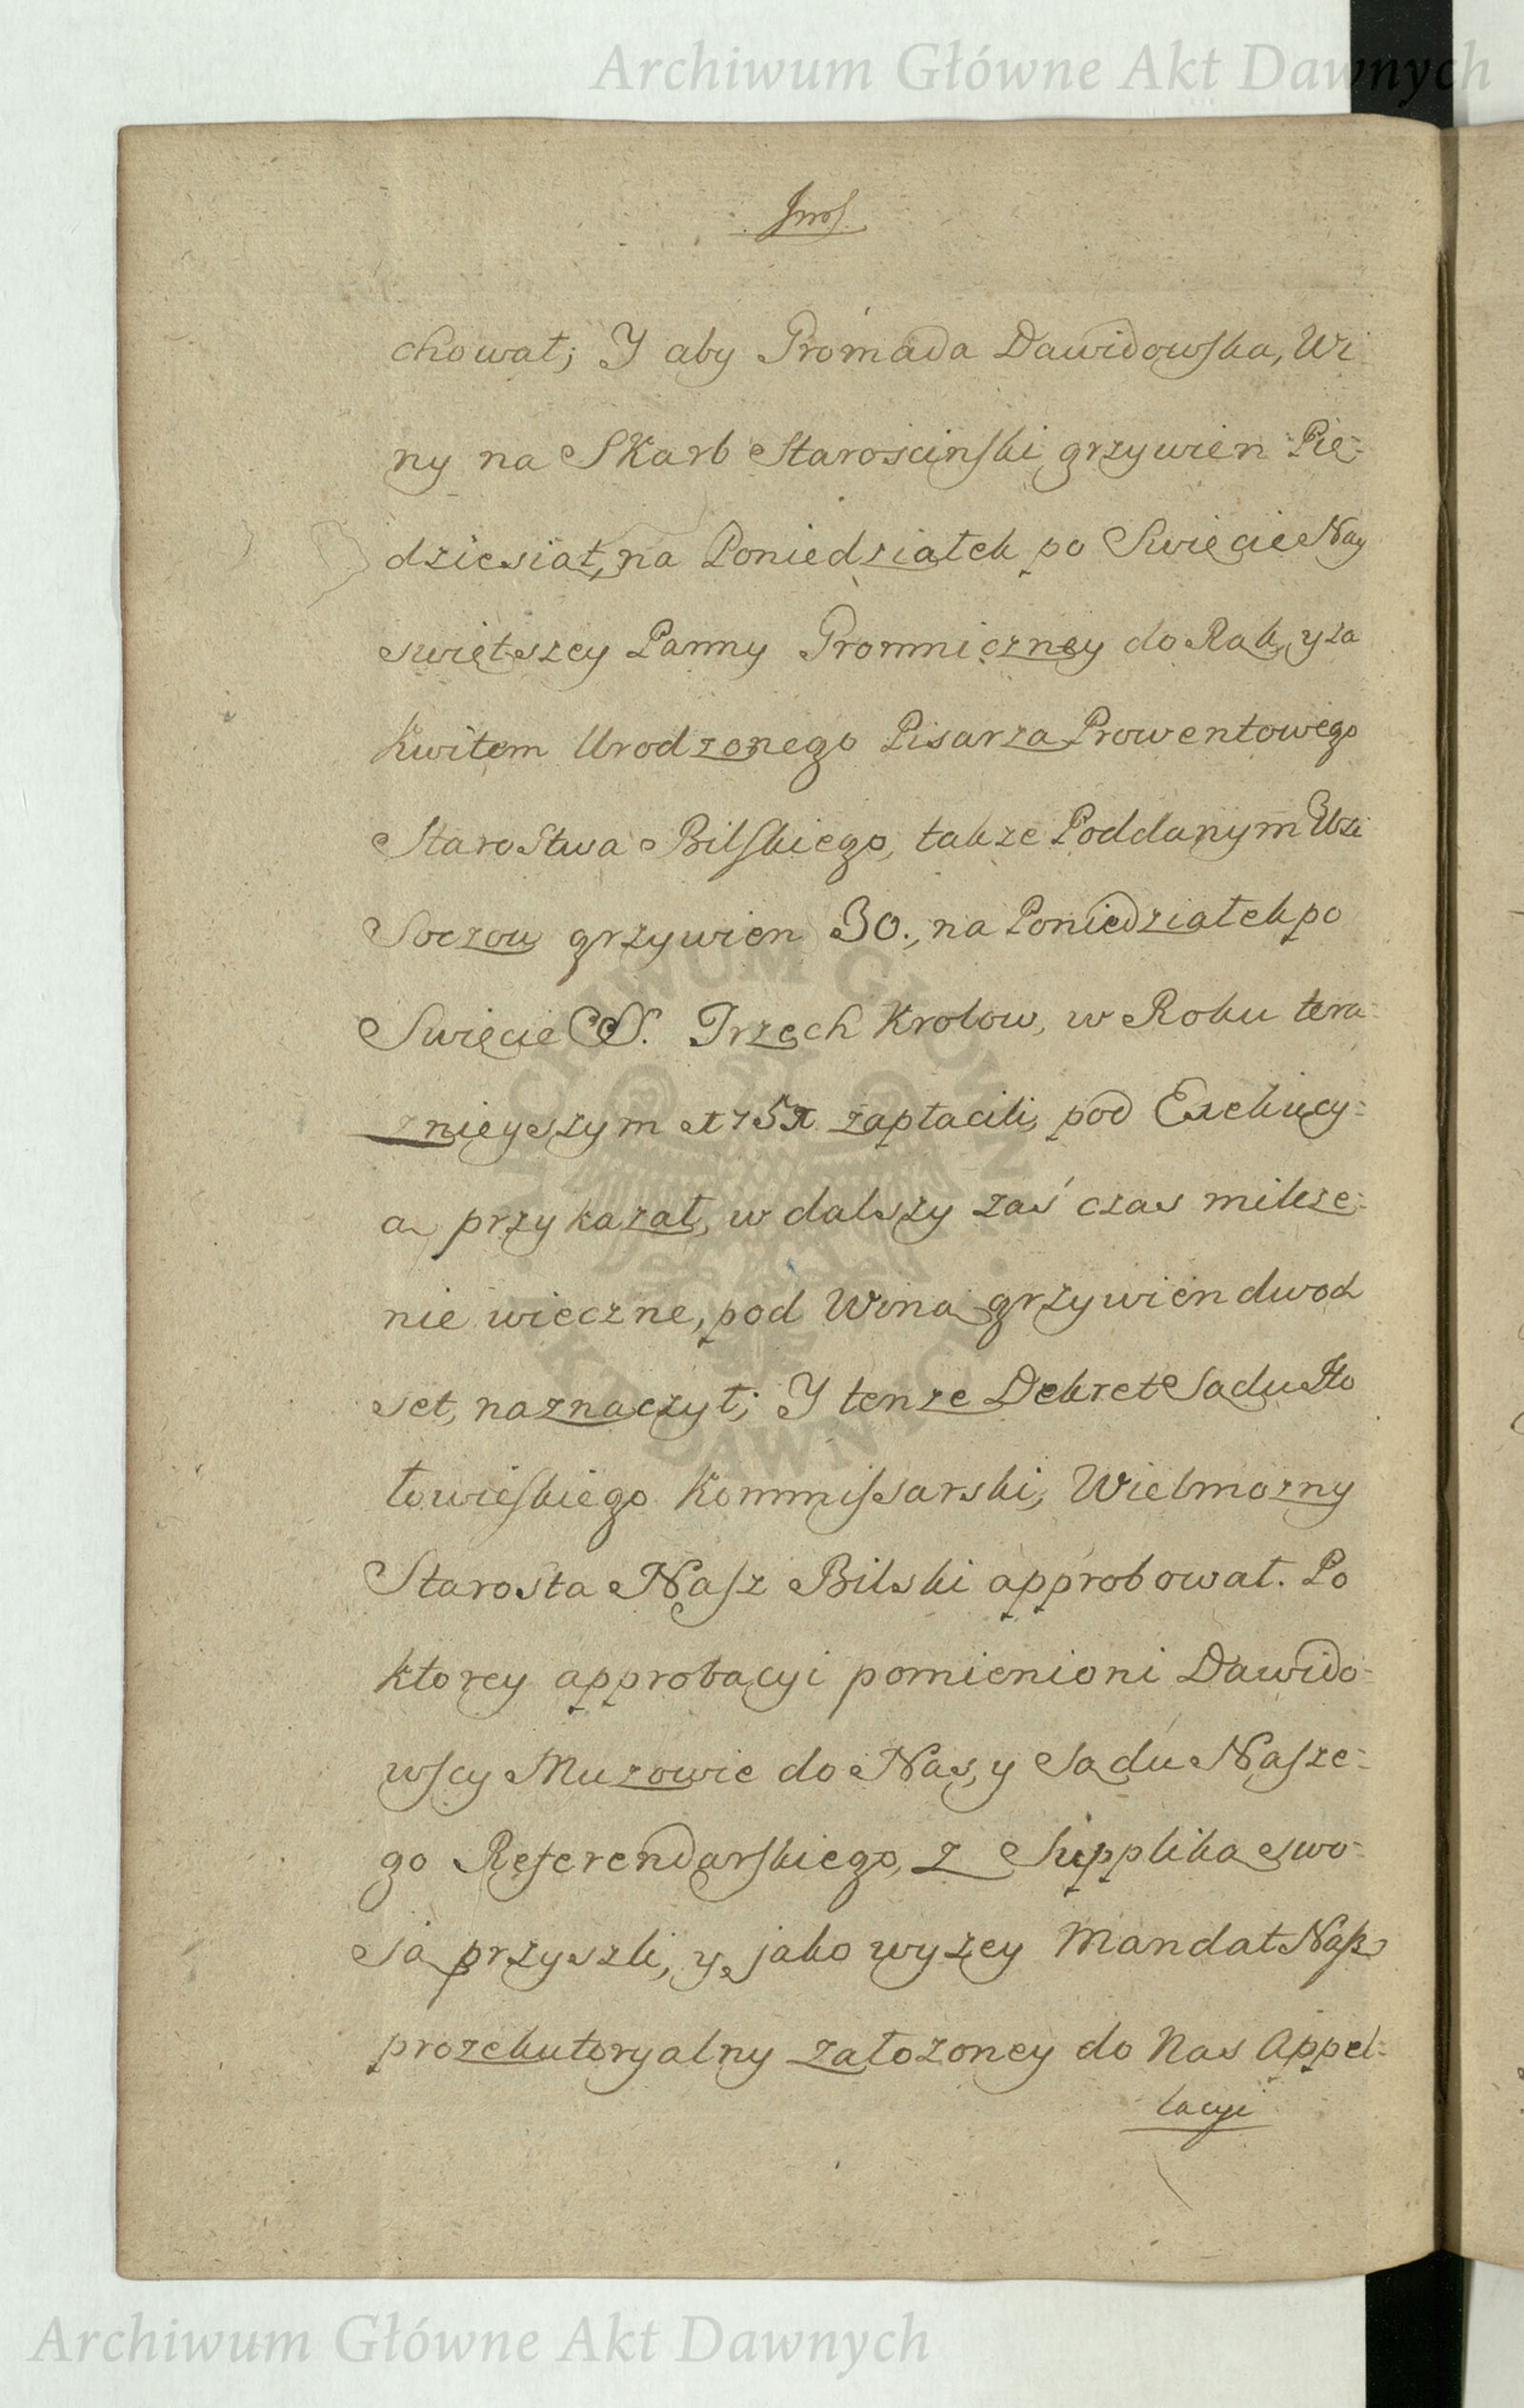 Archiwum Główne Akt Dawnych
chował; Y aby Gromada Dawidowska, Wi
ny na Skarb Staroscinski grzywien Pię-
dziesiąt, na Poniedziałek po Swięcie Nay
swiętszey Panny Gromniczney do Rąk, y za
Kwitem Urodzonego Pisarza Prowentowego
Starostwa Bilskiego, także Poddanym Uzi
Soczow grzywien 30., na Poniedziałek po
Swięcie SS. Trzech Krolow, w Roku tera-
znieyszym 1751 zapłacili, pod Exekucy-
ą przykazał, w dalszy zaś czas milcze-
nie wieczne, pod Winą grzywien dwoch
set, naznaczył; Y tenże Dekret Sądu
łowieskiego Kommissarski, Wielmożny
Starosta Nasz Bilski approbował. Po
ktorey approbacyi pomienioni Dawido-
wscy Mużowie do Nas, y Sądu Nasze-
go Referendarskiego, z Suppliką swo-
ią przyszli, y jako wyżey Mandat Nasz
prozekutoryalny założoney do Nas Appel-
lacyi
ARCHIWUM GŁÓWNE AKT DAWNYCH
Archiwum Główne Akt Dawnych